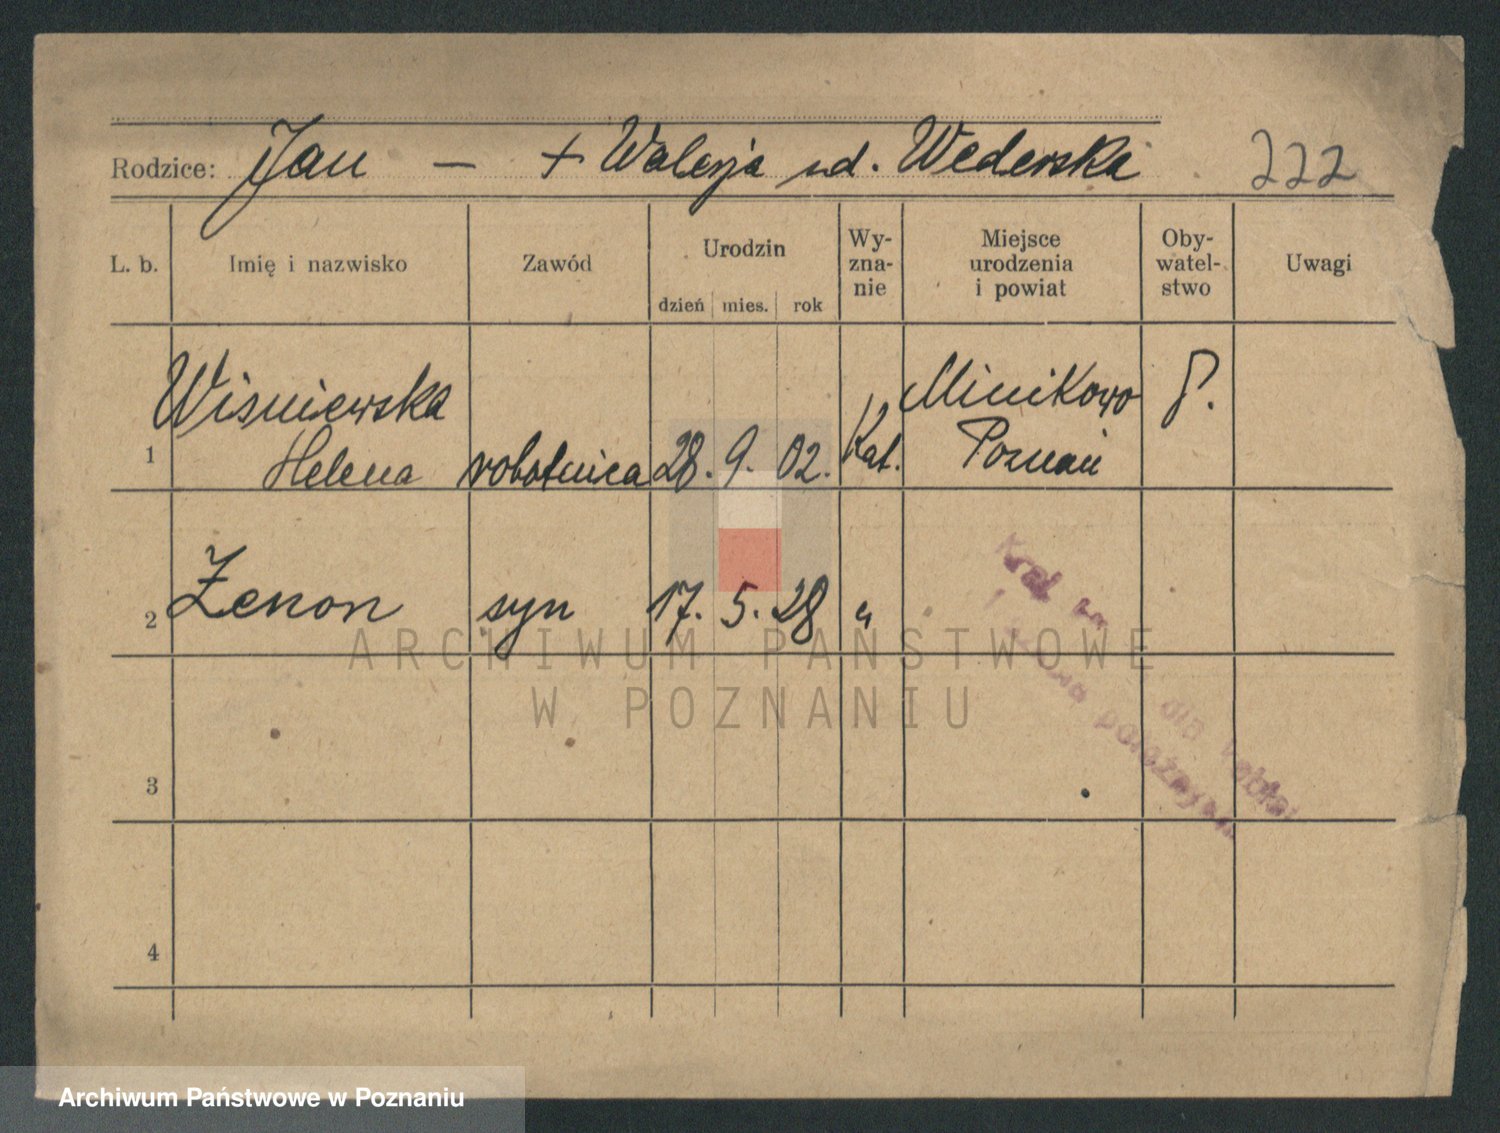 Rodzice: Jan — + Walerja ud. Wederska 222
L. b. Imię i nazwisko Zawód Urodzin dzień mies. rok Wy-zna-nie Miejsce urodzenia i powiat Oby-watel-stwo Uwagi
Wiśniewska Minikowo P.
1 Helena robotnica 28. 9. 02. Kat. Poznań
2 Zenon syn 17. 5. 28 "
3
4
dla
ARCHIWUM PAŃSTWOWE
W POZNANIU
Archiwum Państwowe w Poznaniu